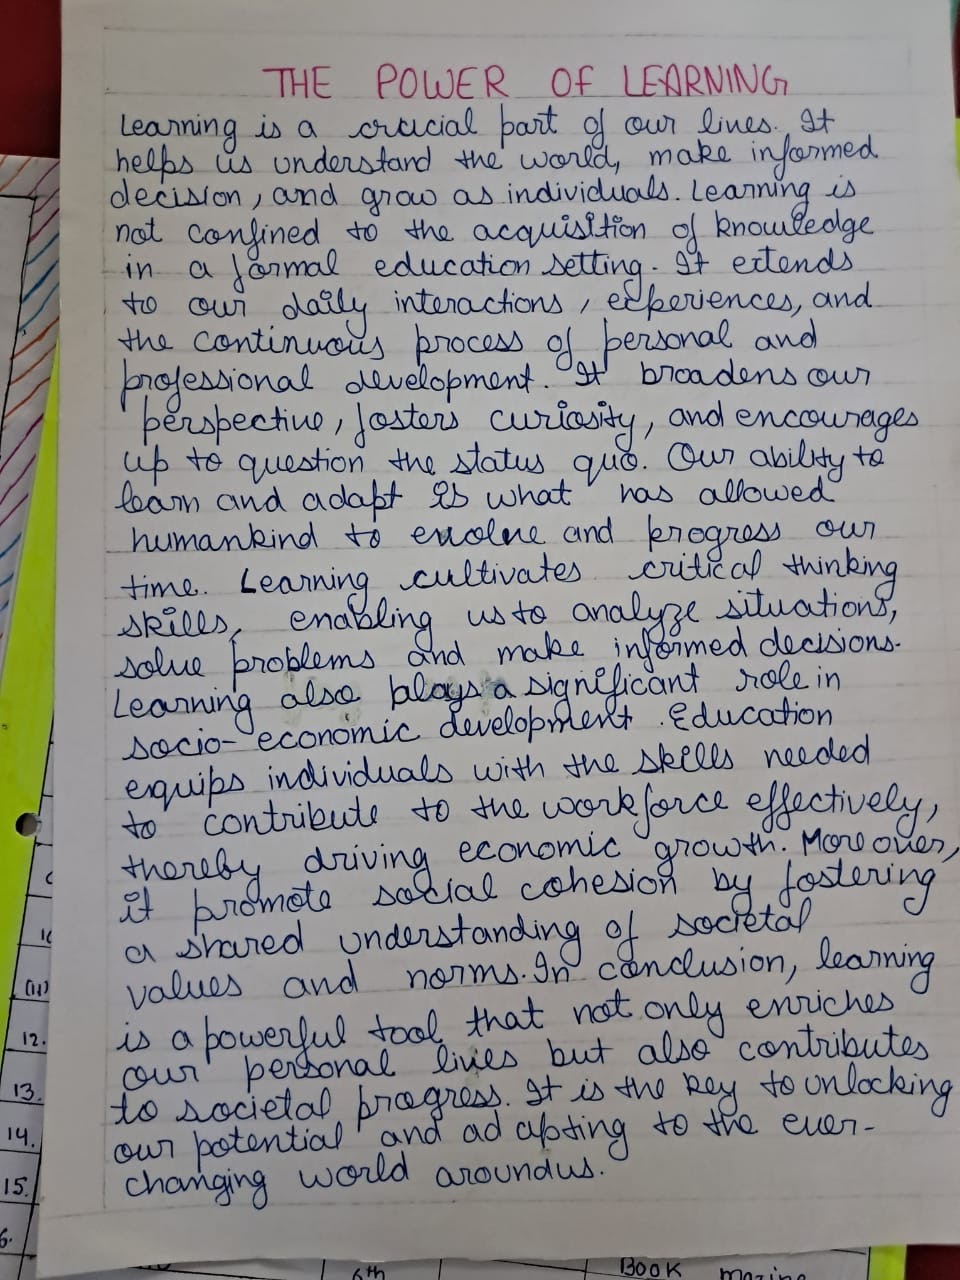 THE POWER OF LEARNING
Learning is a crucial part of our lines. It
helps us understand the world, make informed
decision, and grow as individuals. Learning is
not confined to the acquisition of knowledge
in a formal education setting. It extends
to our daily interactions, experiences, and
the continuous process of personal and
professional development. It broadens our
perspective, fosters curiosity, and encourages
up to question the status quo. Our ability to
learn and adapt is what has allowed
humankind to evolve and progress our
time. Learning cultivates critical thinking
skills, enabling us to analyze situations,
solve problems and make informed decisions.
Learning also plays a significant role in
socio-economic development. Education
equips individuals with the skills needed
to contribute to the workforce effectively,
thereby driving economic growth. Moreover,
it promote social cohesion by fostering
a shared understanding of societal
values and norms. In conclusion, learning
is a powerful tool that not only enriches
our personal lives but also contributes
to societal progress. It is the key to unlocking
our potential and adapting to the ever-
changing world around us.
10
(11)
12.
13.
14.
15.
6.
6th
BOOK